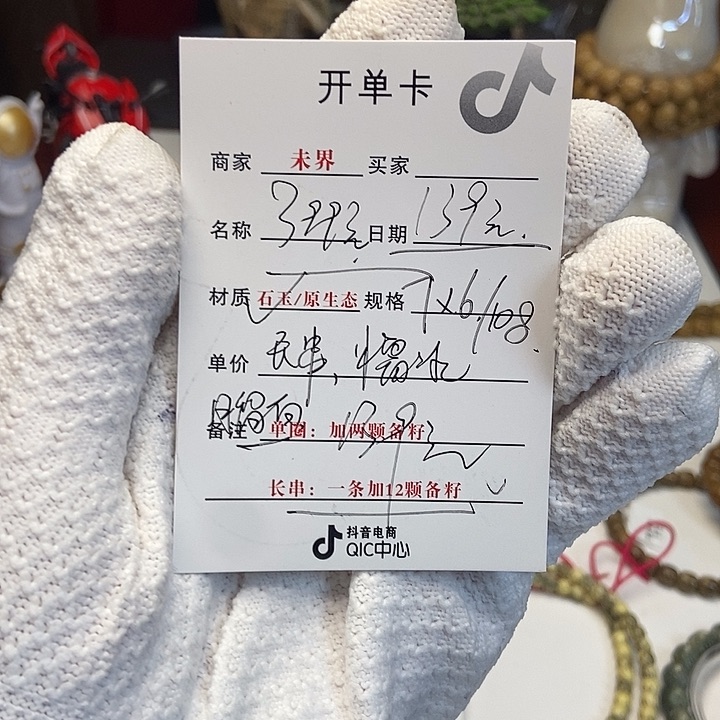 开单卡
商家 未界 买家
名称 日期 139元.
材质 石玉/原生态 规格 7x6/108
单价 长串,
备注 单圈：加两颗备籽 139元
长串：一条加12颗备籽
抖音电商
QIC中心